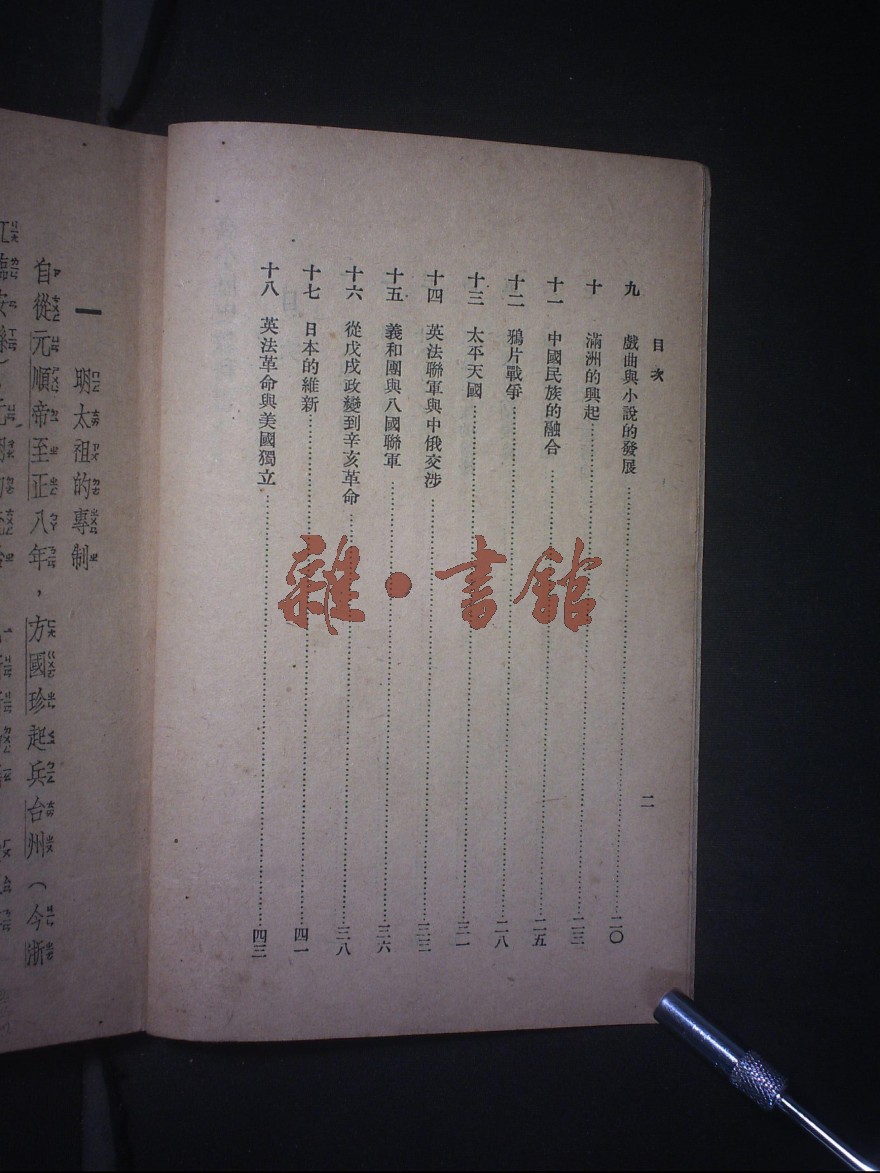 目次
二
九 戲曲與小說的發展 二〇
十 滿洲的興起 二三
十一 中國民族的融合 二五
十二 鴉片戰爭 二八
十三 太平天國 三一
十四 英法聯軍與中俄交涉 三三
十五 義和團與八國聯軍 三六
十六 從戊戌政變到辛亥革命 三八
十七 日本的維新 四一
十八 英法革命與美國獨立 四三
雜·書館
一 明太祖的專制
自從元順帝至正八年，方國珍起兵台州（今浙